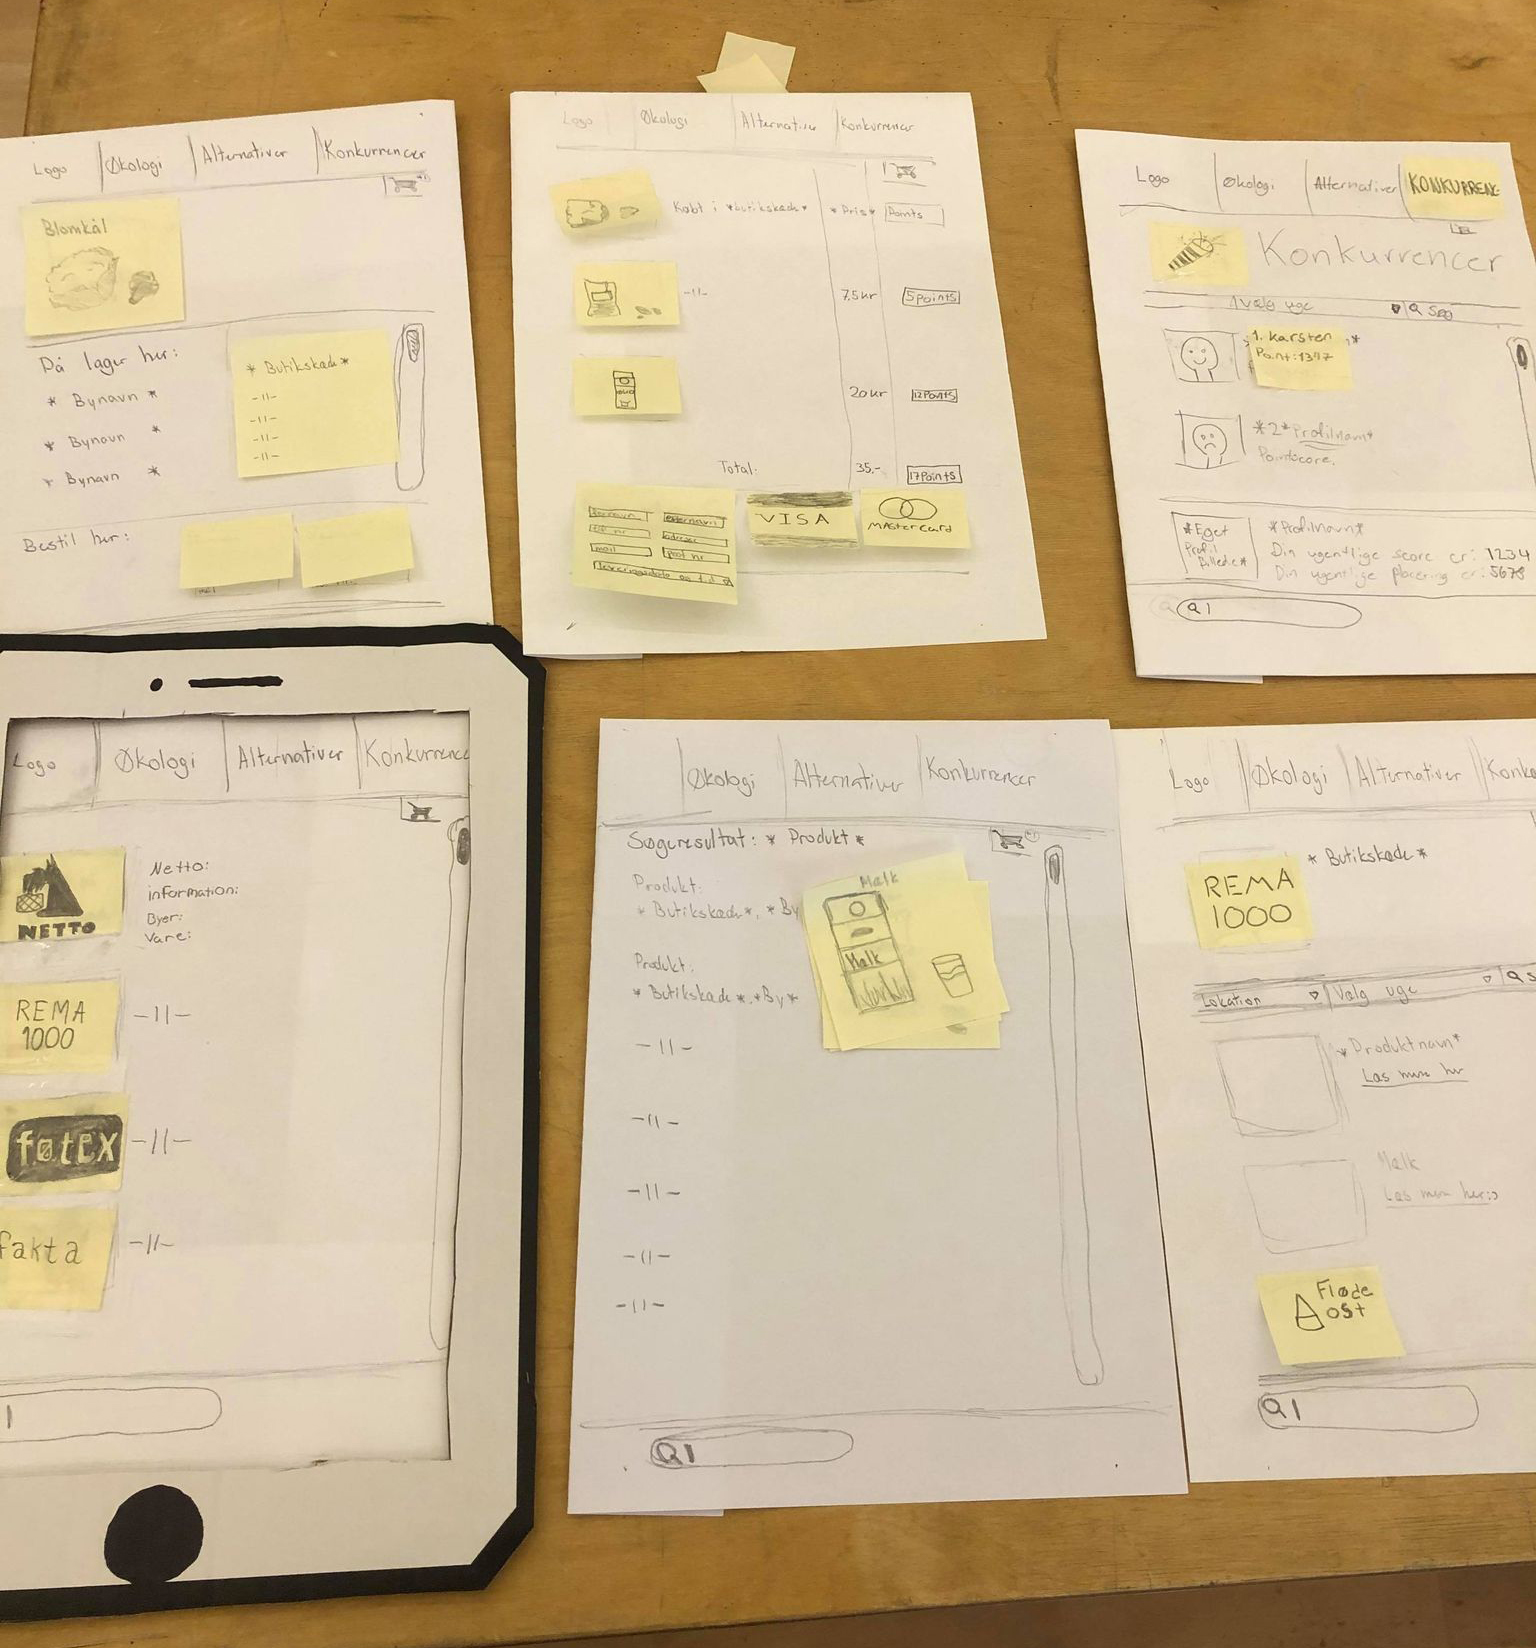 Logo Økologi Alternativer Konkurrencer
Blomkål
På lager her:
* Bynavn *
* Bynavn *
* Bynavn *
* Butikskæde *
-11-
-11-
-11-
-11-
Bestil her:
Logo Økologi Alternativer Konkurrencer
Købt i *butikskæde* *Pris* Points
-11- 7.5kr 5points
20kr 12Points
Total: 35,- 17Points
efternavn
tlf nr adresse
mail post nr
VISA
MAsterCard
Logo Økologi Alternativer KONKURRENC
Konkurrencer
Vælg uge Søg
1. Karsten
Point:1347
*2* Profilnavn*
Pointscore.
*Eget
Profil
Billede*
*Profilnavn*
Din ugentlige score er: 1234
Din ugentlige placering er: 5678
Logo Økologi Alternativer Konkurrence
NETTO
Netto:
information:
Byer:
Vare:
REMA
1000
-11-
føtex
-11-
fakta
-11-
Økologi Alternativer Konkurrencer
Søgeresultat: * Produkt *
Produkt:
* Butikskæde *, * By
Produkt:
* Butikskæde *, *By*
-11-
-11-
-11-
-11-
-11-
Mælk
Mælk
Logo Økologi Alternativer Konku
REMA
1000
* Butikskæde *
Lokation Vælg uge S
*Produktnavn*
Læs mere her
Mælk
Læs mere her:)
Fløde
ost